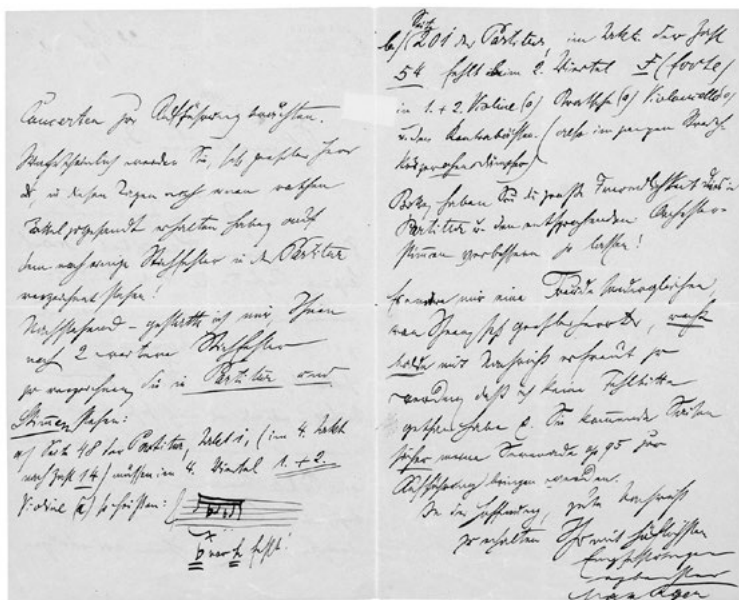 Concerten zur Aufführung brächten.
Wahrscheinlich werden Sie, sehr geehrter Herr
in diesen Tagen noch einen rothen
Zettel zugesandt erhalten haben, auf
dem noch einige Stichfehler in der Partitur
verzeichnet stehen!
Nachstehend – gestatte ich mir, Ihnen
noch 2 weitere Stichfehler
zu verzeichnen, die in Partitur und
Stimmen stehen:
a) Seite 48 der Partitur, Takt 1, (im 4. Takt
nach Zahl 14) müssen im 4. Viertel 1. + 2.
Violine (a) so heißen:
b vor h fehlt!
b) Seite 201 der Partitur, im Takt der Zahl
54 fehlt beim 2. Viertel f (forte)
in 1. + 2. Violine (a) Bratsche (a) Violoncello (a)
u. den Kontrabässen. (also im ganzen Streich-
körper ohne Dämpfer)
Bitte, haben Sie die große Freundlichkeit dies in
Partitur u. den entsprechenden Orchester-
stimmen verbessern zu lassen!
mir eine Freude sondergleichen,
von Ihnen, sehr geehrter Herr, recht
bald mit Nachricht erfreut zu
werden, daß ich keine Fehlbitte
gethan habe u. Sie kommende Saison
sicher meine Serenade op 95 zur
Aufführung bringen werden.
In der Hoffnung, gute Nachricht
zu erhalten Ihr mit schönsten
Empfehlungen
ergebenster
Max Reger